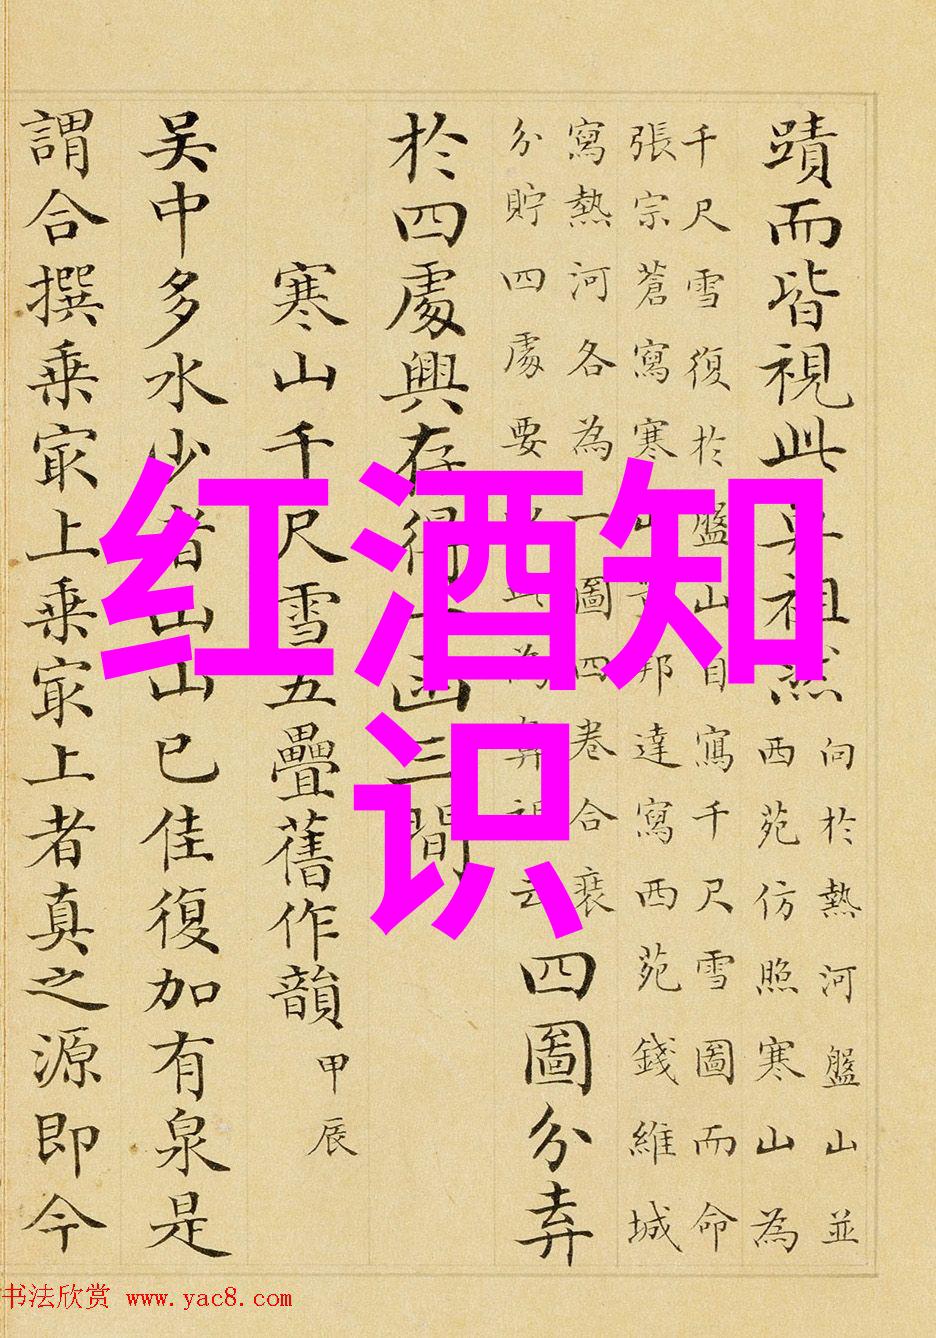 蹟而皆視此祖然
向於熱河盤山並
西苑仿照寒山為
千尺雪復於盤山自寫千尺雪圖而命
張宗蒼寫寒山董邦達寫西苑錢維城
寫熱河各為一圖四卷合裝
分貯四處要
云
四圖分弆
於四處興存得一函三間
寒山千尺雪五疊舊作韻
甲辰
吳中多水少者山山已佳復加有泉是
謂合撰乗㝡上乗㝡上者真之源即今
红酒知
识
书法欣赏 www.yac8.com